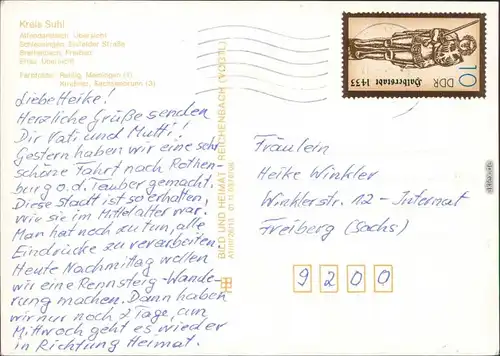 Kreis Suhl
Altendambach, Übersicht
Schleusingen, Suhler Straße
Breitenbach, Freibad
Erlau, Übersicht
Farbfotos: Meiningen (1)
Sachsenbrunn (3)
Liebe Heike!
Herzliche Grüße senden
Dir Vati und Mutti!
Gestern haben wir eine sehr
schöne Fahrt nach Rothen-
burg o.d. Tauber gemacht.
Diese Stadt ist so erhalten,
wie sie im Mittelalter war.
Man hat noch zu tun, alle
Eindrücke zu verarbeiten.
Heute Nachmittag wollen
wir eine Rennsteig-Wande-
rung machen. Dann haben
wir nur noch 2 Tage, am
Mittwoch geht es wieder
in Richtung Heimat.
BILD UND HEIMAT REICHENBACH (VOGTL)
10
DDR
Halberstadt 1433
Fräulein
Heike Winkler
Winklerstr. 12 - Internat
Freiberg (Sachs)
9200